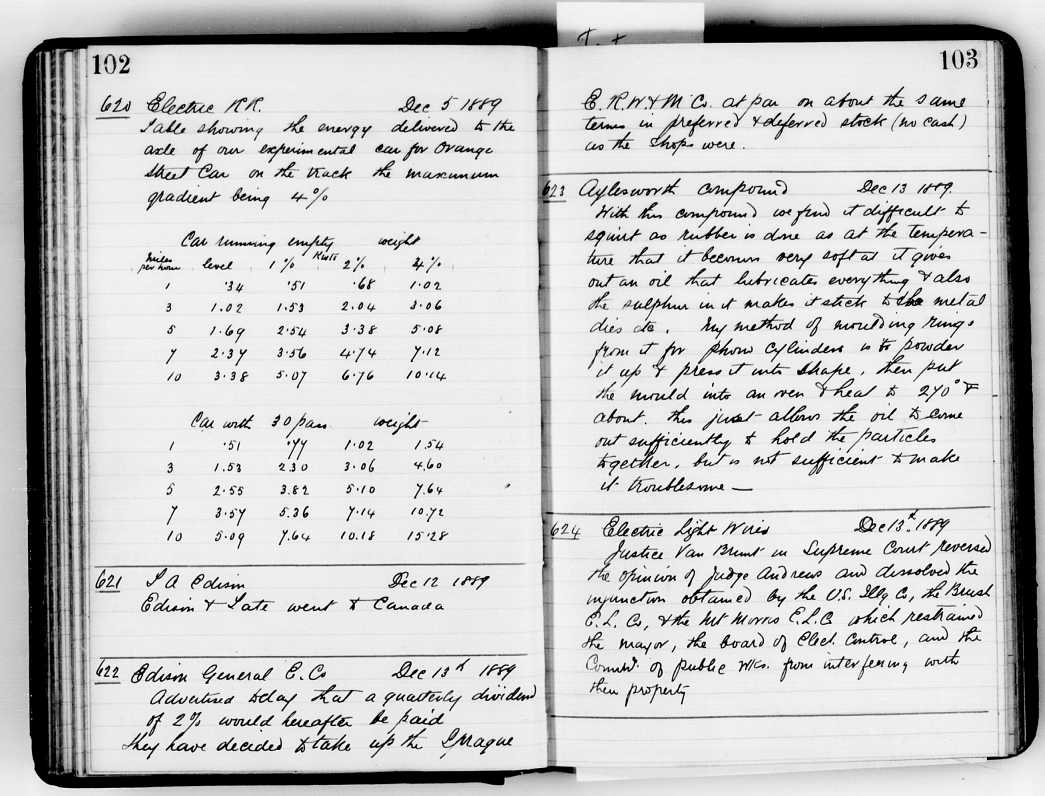 102
620 Electric RR. Dec 5 1889
Table showing the energy delivered to the
axle of our experimental car for Orange
Street Car on the track the maximum
gradient being 4%
Car running empty weight
Miles per hour level 1% 2% 4%
1 .34 .51 .68 1.02
3 1.02 1.53 2.04 3.06
5 1.69 2.54 3.38 5.08
7 2.37 3.56 4.74 7.12
10 3.38 5.07 6.76 10.14
Car with 30 pass weight
1 .51 .77 1.02 1.54
3 1.53 2.30 3.06 4.60
5 2.55 3.82 5.10 7.64
7 3.57 5.36 7.14 10.72
10 5.09 7.64 10.18 15.28
621 T A Edison Dec 12 1889
Edison & Tate went to Canada
622 Edison General E. Co Dec 13th 1889
Advertised today that a quarterly dividend
of 2% would hereafter be paid
they have decided to take up the Sprague
103
E. R.W. & M Co. at par on about the same
terms in preferred & deferred stock (no cash)
as the Shops were.
623 Aylesworth compound Dec 13 1889
With this compound we find it difficult to
squirt as rubber is done as at the tempera-
ture that it becomes very soft at it gives
out an oil that lubricates everything & also
the sulphur in it makes it stick to the metal
dies etc. My method of moulding rings
from it for phono cylinders is to powder
it up & press it into shape, then put
the mould into an oven & heat to 270° F
about. this just allows the oil to come
out sufficiently to hold the particles
together, but is not sufficient to make
it troublesome —
624 Electric Light Wires Dec 13th 1889
Justice Van Brunt in Supreme Court reversed
the opinion of Judge Andrews and dissolved the
injunction obtained by the U.S. Illg Co, the Brush
E. L. Co, & the Mt Morris E.L.C which restrained
the mayor, the board of Elect. Control, and the
Commr. of public wks. from interfering with
their property